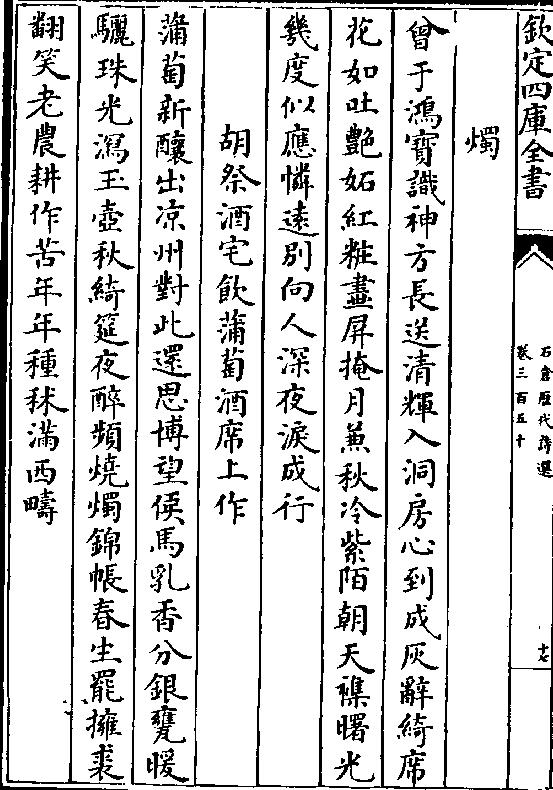 欽定四庫全書
石倉歷代詩選
卷三百五十
十七
燭
曾于鴻寶識神方長送清輝入洞房心到成灰辭綺席
花如吐艷妬紅粧畫屏掩月兼秋冷紫陌朝天襍曙光
幾度似應憐遠別向人深夜淚成行
胡祭酒宅飲蒲萄酒席上作
蒲萄新釀出凉州對此還思博望侯馬乳香分銀甕暖
驪珠光瀉玉壺秋綺筵夜醉頻燒燭錦帳春生罷擁裘
翻笑老農耕作苦年年種秫滿西疇